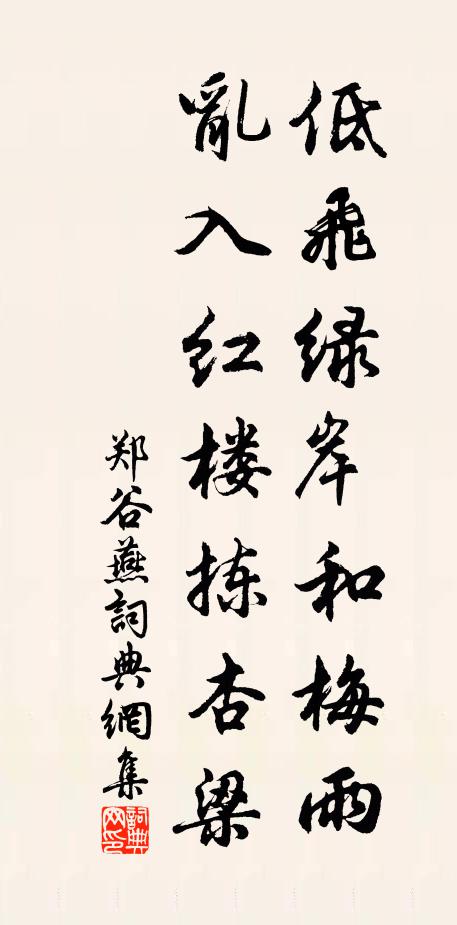 低飛綠岸和梅雨
亂入红楼拣杏梁
郑谷燕詞典網集
詞典网印